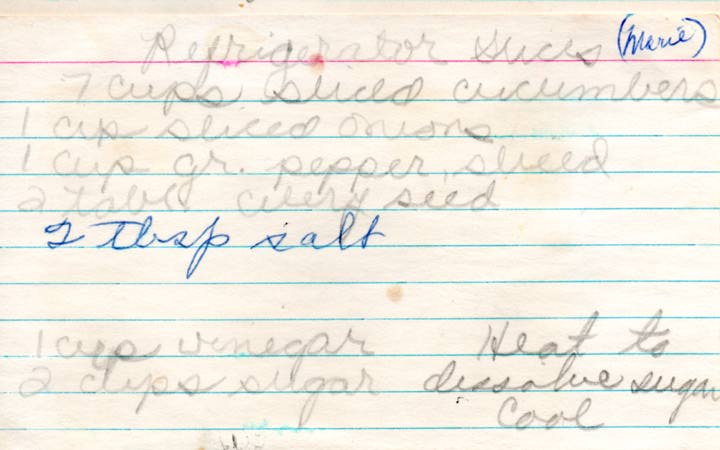 Refrigerator Slices (Marie)
7 cups sliced cucumbers
1 cup sliced onions
1 cup gr. pepper, sliced
2 tabl celery seed
2 tbsp salt
1 cup vinegar Heat to
2 cups sugar dissolve sugar
Cool